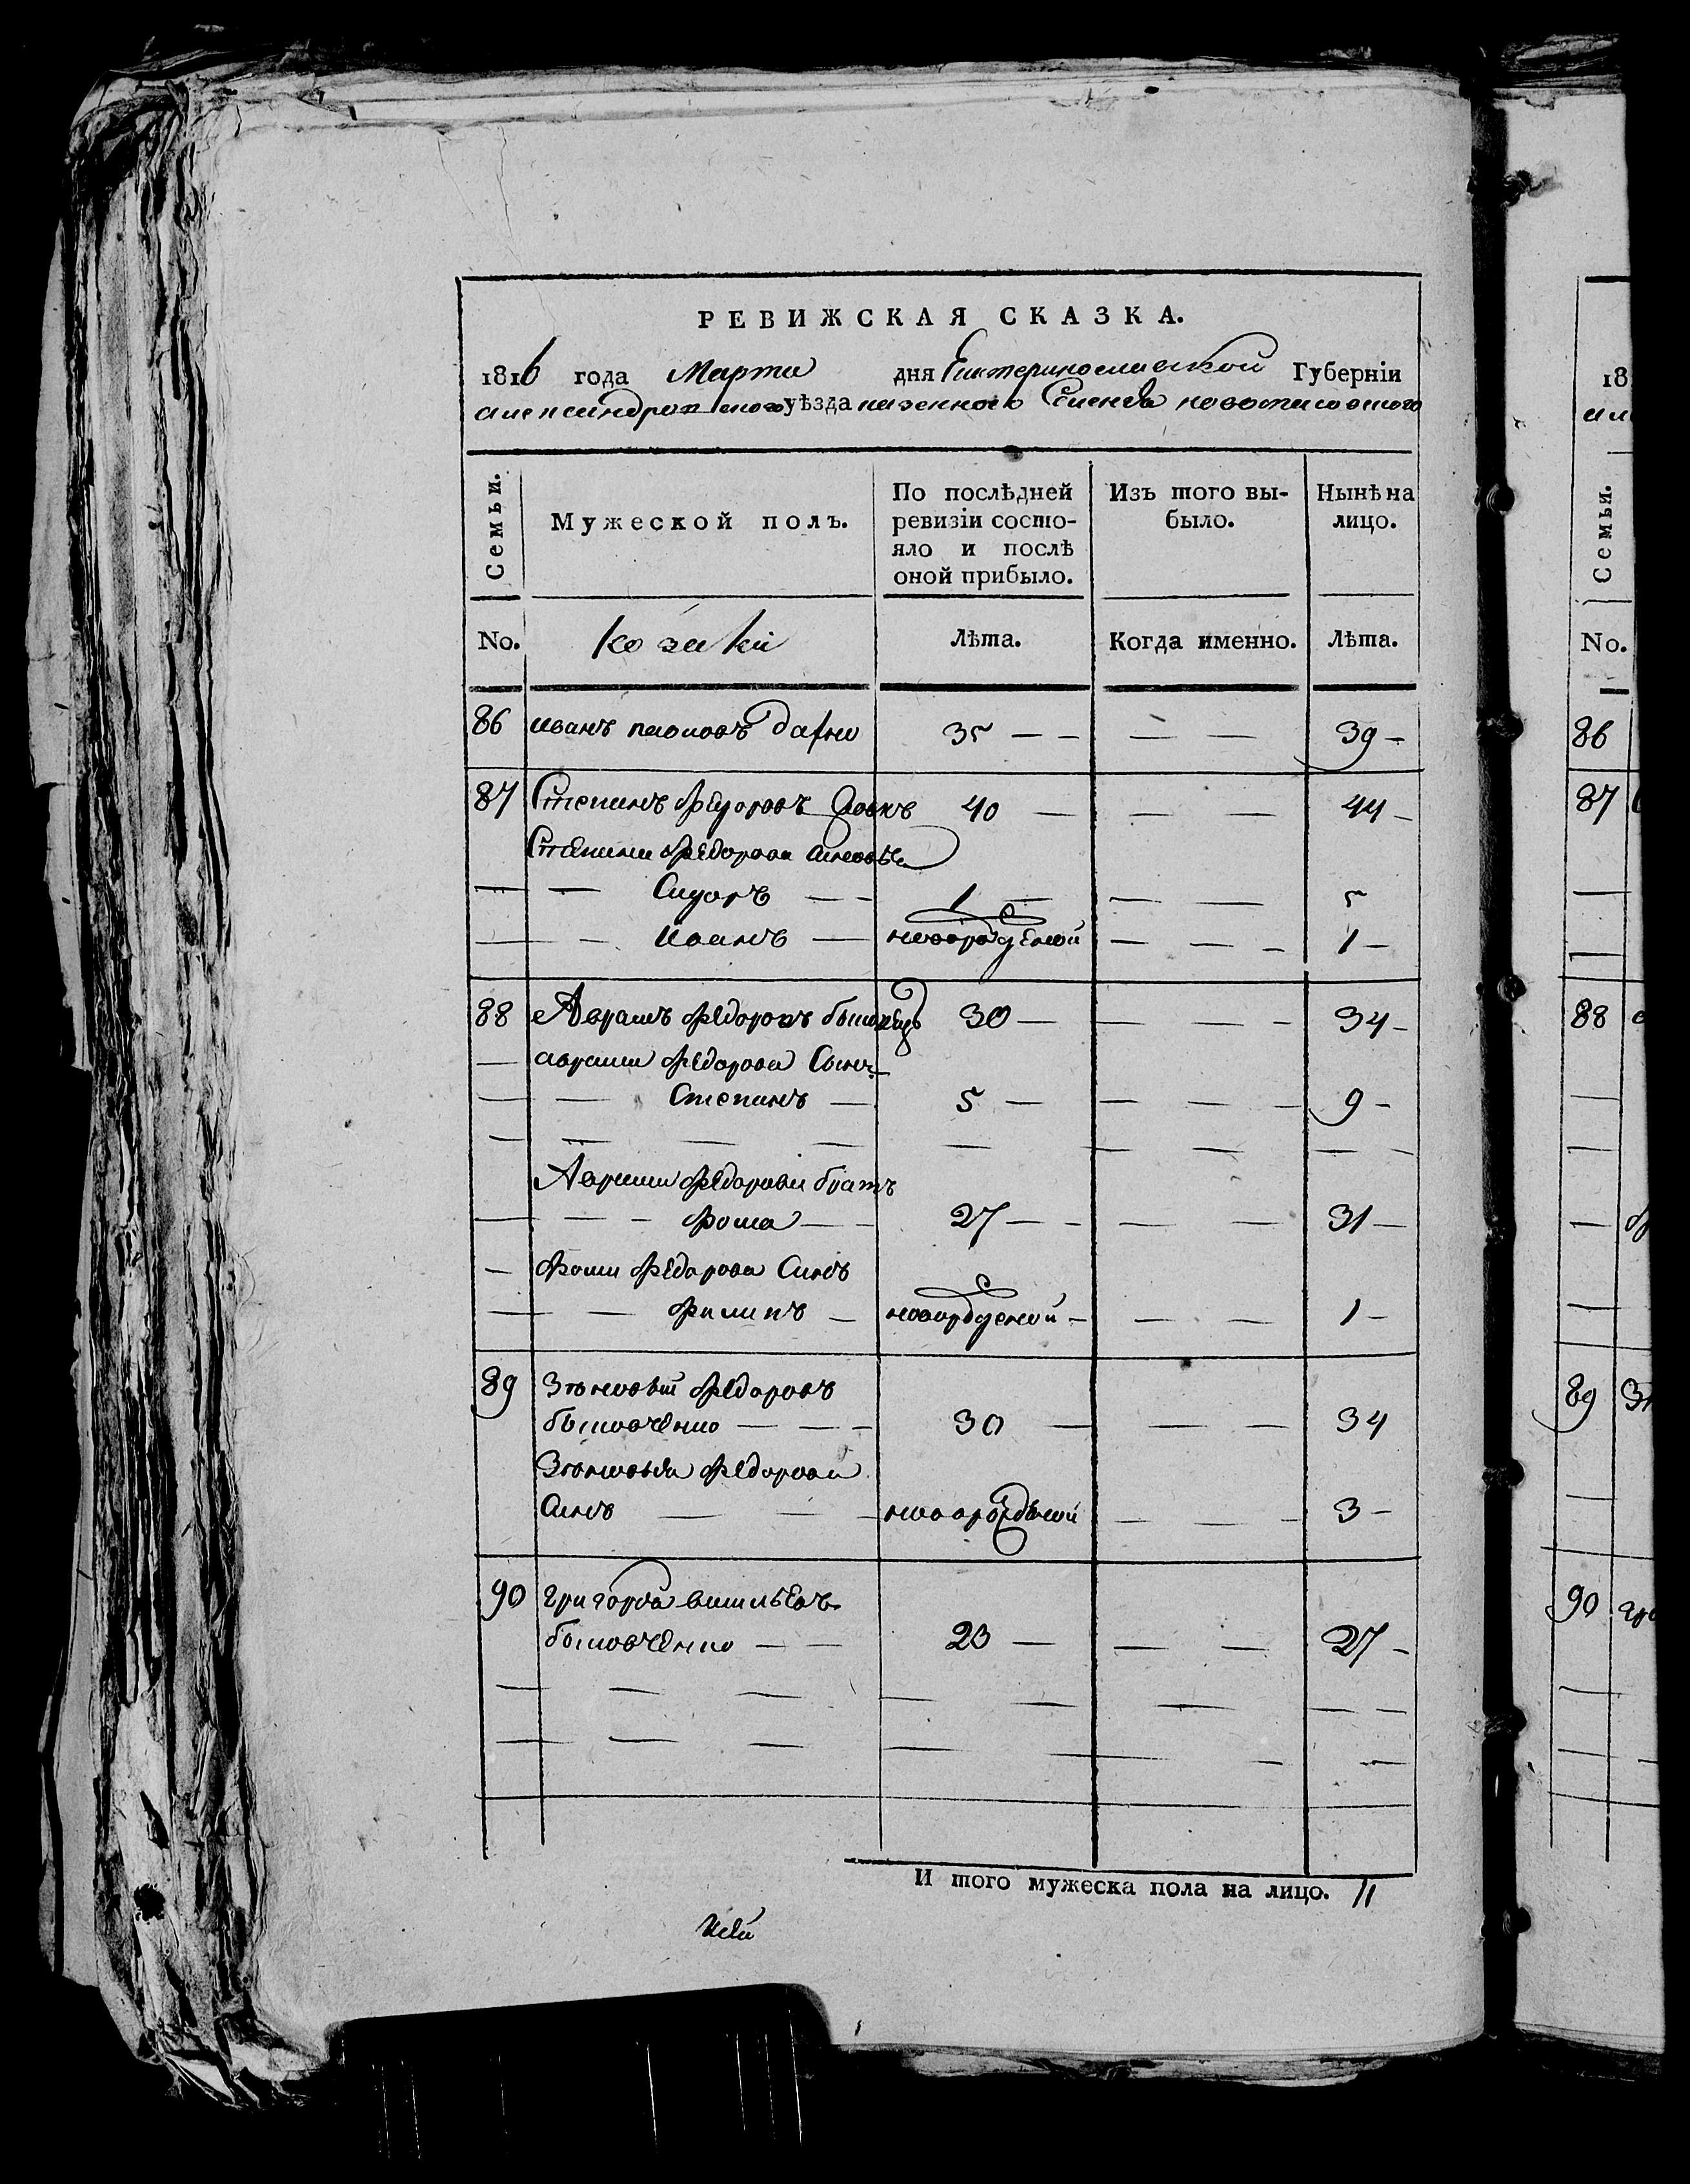 РЕВИЖСКАЯ СКАЗКА.
1816 года Марта дня Екатеринославской Губерніи
александровского уѣзда казенного Селенія
Семьи.
Мужеской полъ.
По послѣдней ревизіи состояло и послѣ оной прибыло.
Изъ того выбыло.
Нынѣ на лицо.
No. козаки Лѣта. Когда именно. Лѣта.
86 иванъ 35 — — — — 39 —
87 Степанъ Федоровъ 40 — — — 44 —
Степана Федорова
— — Сидоръ — — 1 — — — 5
— — Иванъ — новорожденой — — — 1 —
88 Аврамъ Федоровъ 30 — — — — 34 —
— аврама Федорова Сынъ
— — Степанъ — 5 — — — — 9 —
Аврама Федорова братъ
— — — Фома — — 27 — — — — 31 —
— Фоми Федорова Синъ
— — Филипъ — новорожденой — — — 1 —
89 Зѣновѣй Федоровъ
— — — 30 — — — 34
Зѣновѣя Федорова
Синъ — — новорожденой — — — 3 —
90 григорѣй васильевъ
— — 23 — — — 27 —
И того мужеска пола на лицо. 11
18
Семьи.
No.
86
87
88
89
90